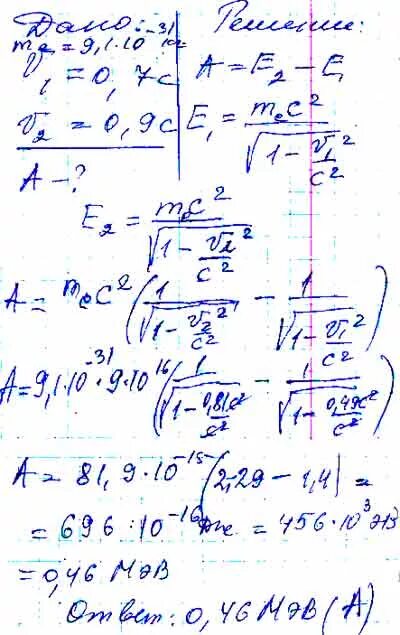 Дано: Решение:
mₑ = 9,1·10⁻³¹ кг
v₁ = 0,7c A = E₂ – E₁
v₂ = 0,9c E₁ = mₑc² / √(1 – v₁²/c²)
A – ?
E₂ = mₑc² / √(1 – v₂²/c²)
A = mₑc² (1/√(1 – v₂²/c²) – 1/√(1 – v₁²/c²))
A = 9,1·10⁻³¹·9·10¹⁶ (1/√(1 – 0,81c²/c²) – 1/√(1 – 0,49c²/c²))
A = 81,9·10⁻¹⁵ (2,29 – 1,4) =
= 696·10⁻¹⁶ = 456·10³ эВ
= 0,46 МэВ
Ответ: 0,46 МэВ (A)